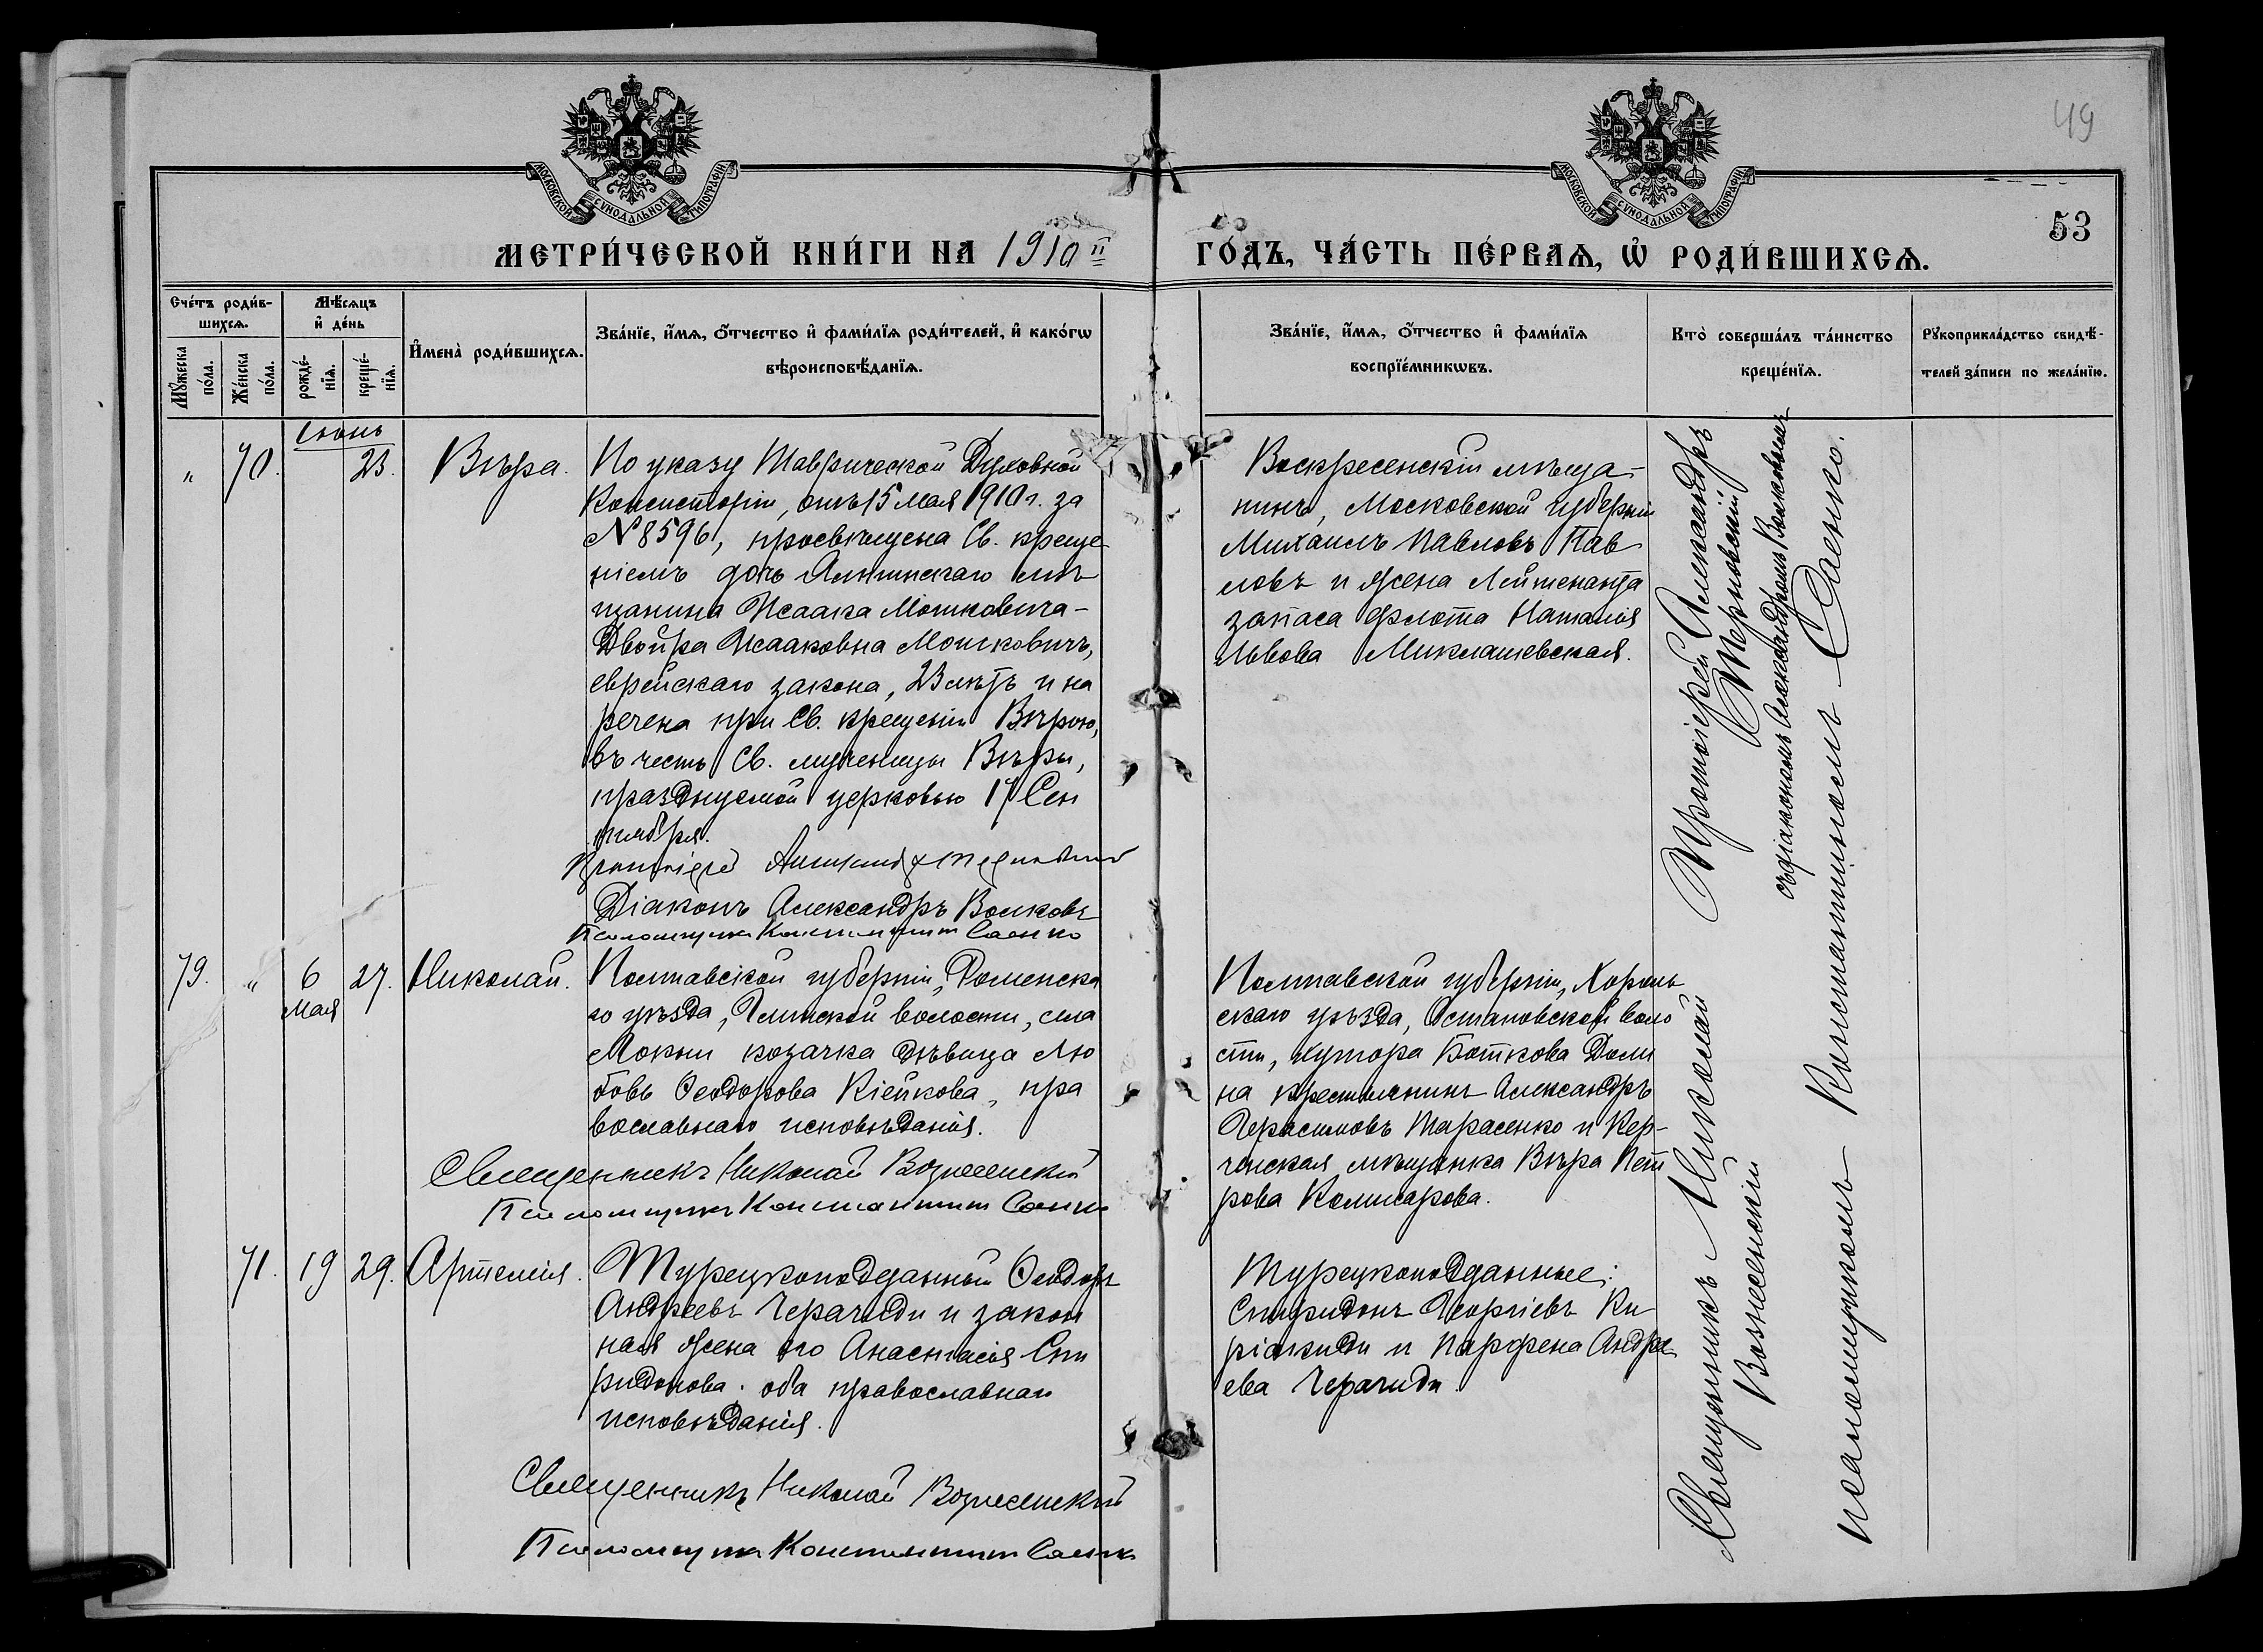 49
МОСКОВСКОЙ СУНОДАЛЬНОЙ ТИПОГРАФІИ
МОСКОВСКОЙ СУНОДАЛЬНОЙ ТИПОГРАФІИ
53
МЕТРИ́ЧЕСКОЙ КНИ́ГИ НА 1910й ГО́ДЪ, ЧА́СТЬ ПЕ́РВАѦ, Ѡ҆ РОДИ́ВШИХСѦ.
Сче́тъ роди́в-
шихсѧ.
Мѣ́сѧцъ
и҆ де́нь
Мꙋ́жеска
по́ла.
Же́нска
по́ла.
рожде́-
нїѧ.
креще́-
нїѧ.
И҆мена̀ роди́вшихсѧ.
Зва́нїе, и҆́мѧ, о҆́тчество и҆ фами́лїѧ роди́телей, и҆ како́гѡ
вѣроисповѣ́данїѧ.
Зва́нїе, и҆́мѧ, о҆́тчество и҆ фами́лїѧ
воспрїе́мникѡвъ.
Кто̀ соверша́лъ та́инство
креще́нїѧ.
Рꙋкоприкла́дство свидѣ́-
телей за́писи по жела́нїю.
Іюнь
" 70. 23. Вѣра.
По указу Таврической Духовной
Консисторіи, отъ 15 мая 1910 г. за
№ 8596, просвѣщена Св. креще
ніемъ дочь Алешинскаго мѣ
щанина Исаака Мошковича-
Двойра Исааковна Мошковичъ,
еврейскаго закона, 23 лѣтъ и на
речена при Св. крещеніи Вѣрою,
въ честь Св. мученицы Вѣры,
празднуемой церковью 17 Сен
тября.
Протоіерей Александръ Терновскій
Діаконъ Александръ Волковъ
Псаломщикъ Константинъ Саенко
Воскресенскій мѣща-
нинъ, Московской губерніи
Михаилъ Павловъ Пав
ловъ и жена Лейтенанта
запаса флота Наталія
Львова Миклашевская.
Протоіерей Александръ
Терновскій
съ діакономъ Александромъ Волковымъ
79. " 6 мая 27. Николай.
Полтавской губерніи, Роменска
го уѣзда, Глинской волости, села
козачка дѣвица Лю
бовь Ѳеодорова Кіейкова, пра
вославнаго исповѣданія.
Священникъ Николай Вознесенскій
Псаломщикъ Константинъ Саенко
Полтавской губерніи, Хороль
скаго уѣзда, Остаповской воло
сти, хутора Боткова Доли
на крестьянинъ Александръ
Герасимовъ Тарасенко и Кер-
ченская мѣщанка Вѣра Пет
рова Комисарова.
71. 19 29. Артемія.
Турецкоподданный Ѳеодоръ
Андреевъ Герачиди и закон
ная жена его Анастасія Спи
ридонова. оба православнаго
исповѣданія.
Священникъ Николай Вознесенскій
Псаломщикъ Константинъ Саенко
Турецкоподданные:
Спиридонъ Георгіевъ Ки
ріакиди и Парфена Андре
ева Герачиди.
Священникъ Николай
Вознесенскій
псаломщикомъ Константиномъ Саенко.